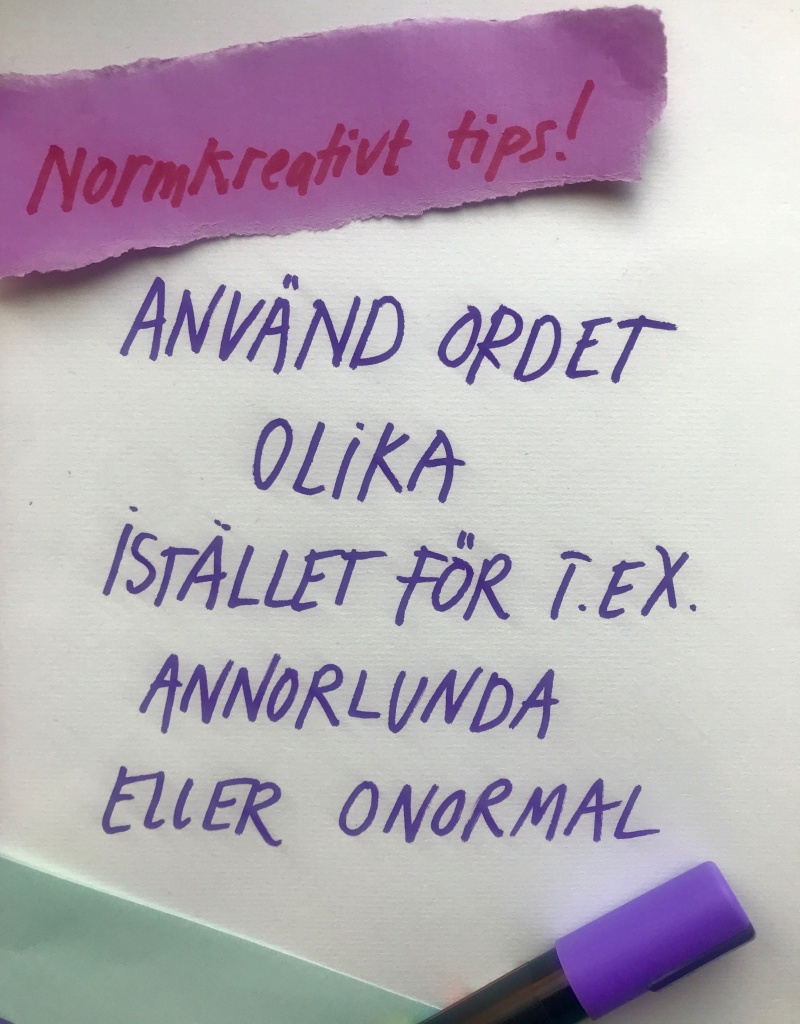 Normkreativt tips!
ANVÄND ORDET
OLiKA
iSTÄLLET FÖR T.EX.
ANNORLUNDA
ELLER ONORMAL